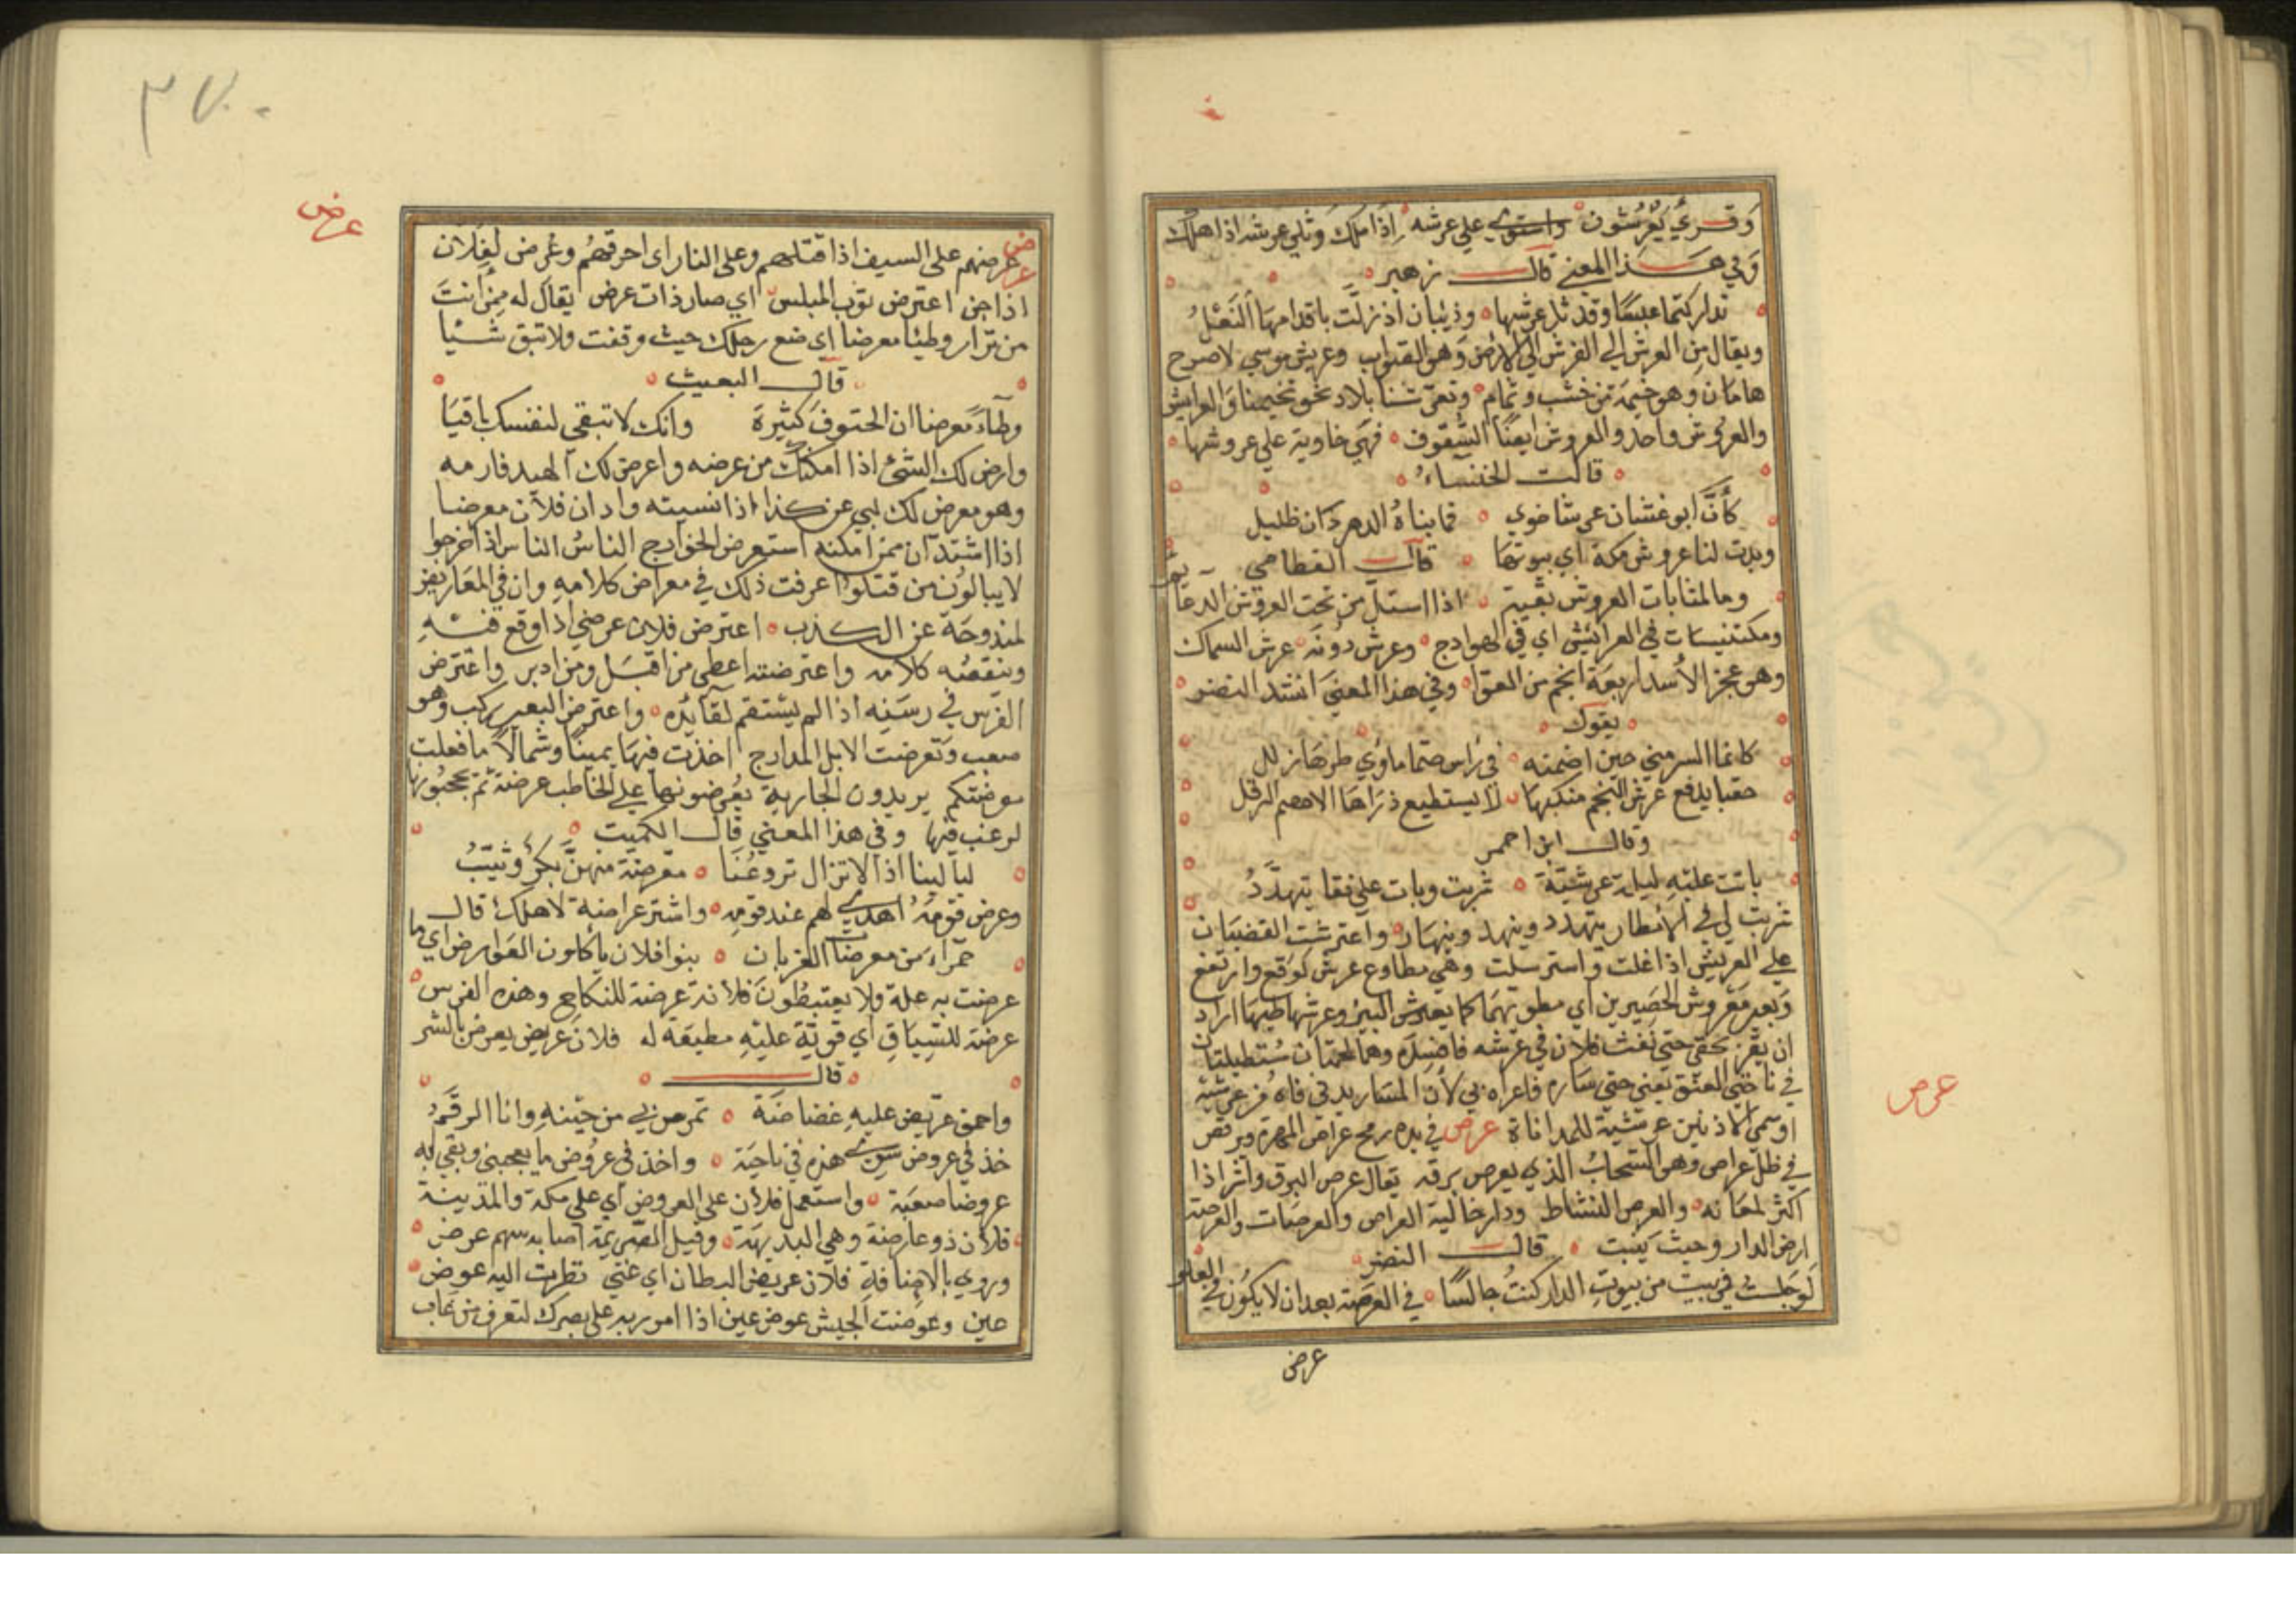 وقرئ يعرشون واستوى على عرشه اذا ملك وثل عرشه اذا هلك
وفي هذا المعنى قال زهير
تداركتما عبسا وقد ثل عرشها وذبيان اذ زلت باقدامها النعل
ويقال من العرش الى الفرش الى الارض وهو وعريش موسى لا صرح
هامان وهو خيمة من خشب وثمام وتعرشنا بلاد نحو تخيمنا والعرايش
والعروش واحد والعروش ايضا السقوف فهي خاوية على عروشها
قالت الخنساء
كأن ابو غسان عرشا خوى فما بناه الدهر دان ظليل
وبدت لنا عروش مكة اي بيوتها قال القطامي
وما لمثابات العروش بقية اذا استل من تحت العروش الدعائم
ومكتنيسات في العرائش اي في الهوادج وعرش دونه عرش السماك
وهو عجز الاسد اربعة انجم من العوا وفي هذا المعنى انشد النضر
يقول
كانما السر مني حين اضمنه في راس صما ماوي طرها زلل
حقبا يدفع عرش النجم منكبها لا يستطيع ذراها الاعصم الوقل
وقال ابن احمر
باتت عليه ليلة عرشية شربت وبات على نقا يتهدد
شربت لي في الامطار يتهدد وينهد وينهار واعترشت القضبان
على العريش اذا علت واسترسلت وهي مطاوع عرش كوقع وارتفع
وبعير معروش الحصيرين اي مطويهما كما يعرش البئر وعرشها طيها اراد
ان يقر بحقي حتى نفث فلان في عرشه فاضله وهما لحمتان مستطيلتان
في ناحيتي العنق يعني حتى ساره فاغراه بي لان المسار يدني فاه من عرشيه
او سمي الاذنين عرشين للمداناة عرص في يده رمح عراص المهزة وبرقص
في ظل عراص وهو السحاب الذي يعرص برقه يقال عرص البرق واشر اذا
اكثر لمعانه والعرص النشاط ودار خالية العراص والعرصات والعرصة
ارض الدار وحيث بنيت قال النضر
لو جلست في بيت من بيوت الدار كنت جالسا في العرصة بعد ان لا يكون في العلو
عرص
عرض
٣٧٠
عرض
عرض عرضهم على السيف اذا قتلهم وعلى النار اي احرقهم وعرض لفلان
اذا جن اعترض ثوب الملبس اي صار ذات عرض يقال له ممن انت
من نزار وطئا معرضا اي ضع رجلك حيث وقفت ولا تبق شيا
قال البعيث
وطاء معرضا ان الحتوف كثيرة وانك لا تبقي لنفسك باقيا
وارض لك الشئ اذا امكنك من عرضه واعرض لك الصيد فارمه
وهو معرض لك لبي عن كذا اذا نسيته وادان فلان معرضا
اذا اشتدان ممن امكنه استعرض الخوارج الناس الناس اذا خرجوا
لا يبالون من قتلوا عرفت ذلك في معراض كلامه وان في المعاريض
لمندوحة عن الكذب اعترض فلان عرضي اذا وقع فيه
وينقصه كلامه واعترضته اعطى من اقبل ومن ادبر واعترض
الفرس في رسنه اذا لم يستقم لقائده واعترض البعير ركب وهو
صعب وتعرضت الابل المدارج اخذت فيها يمينا وشمالا ما فعلت
معرضتكم يريدون الجارية يعرضونها على الخاطب عرضة ثم يحجبونها
لرغب فيها وفي هذا المعنى قال الكميت
ليالينا اذ لا تزال تروعنا معرضة منهن بكر وثيب
وعرض قومه اهدى لهم عند قومه واشتر عراضة لاهلك قال
حمراء من معرضات الغربان بنوا فلان ياكلون العوارض اي ما
عرضت به علة ولا يعتبطون فلانة عرضة للنكاح وهذه الفرس
عرضة للسباق اي قوية عليه مطيقة له فلان عريض يعرض بالشر
قال
واحمق عريض عليه غضاضة تمرس بي من حينه وانا الرقم
خذ في عروض سوى هذه في ناحية واخذ في عروض ما يعجبني وبقي له
عروضا صعبة واستعمل فلان على العروض اي على مكة والمدينة
فلان ذو عارضة وهي البديهة وقيل الصريمة اصابه سهم عرض
وروي بالاضافة فلان عريض البطان اي غني نظرت اليه عرض
عين وعرضت الجيش عرض عين اذا امر ربه على بصرك لتعرف من غاب